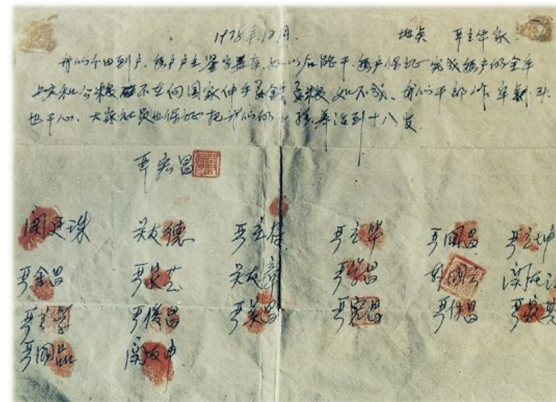 1978年12月. 地点 严立华家
我们分田到户,每户户主签字盖章,如以后能干,每户保证完成每户的全年
上交和公粮 不在向国家伸手要钱要粮 如不成,我们干部作牢刹头
也干心,大家社员也保证把我们的小孩养活到十八岁。
严宏昌
关廷珠 关友德 严立符 严立华 严国昌 严立坤
严金昌 严家芝 关友章 严学昌 韩国云 关友江
严立学 严俊昌 严美昌 严宏昌 严付昌 严家其
严国品 关友申